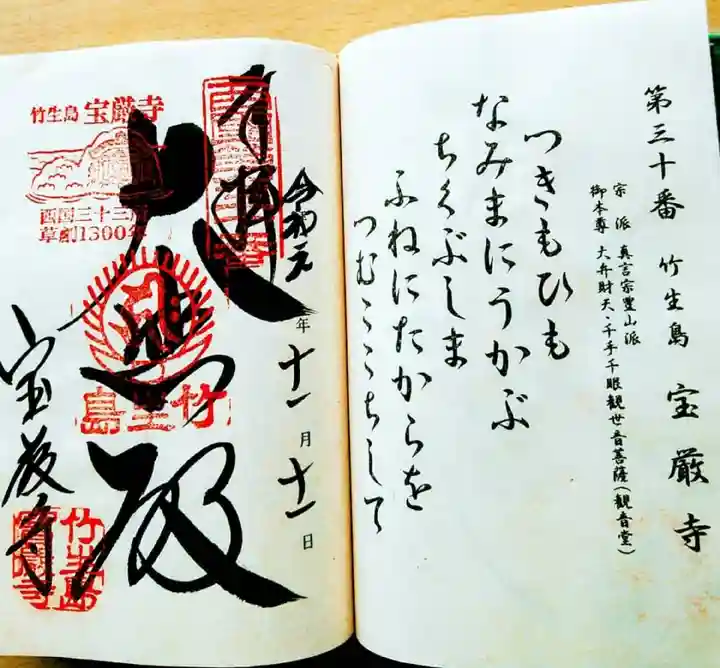 第三十番 竹生島 宝厳寺
宗派 真言宗豊山派
御本尊 大弁財天・千手千眼観世音菩薩(観音堂)
つきもひも
なみまにうかぶ
ちくぶしま
ふねにたからを
つむここちして
奉拝
令和元年十一月十一日
大悲殿
宝厳寺
竹生島 宝厳寺
西国三十三所
草創1300年
竹生島
竹生島